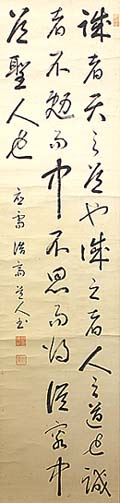 誠者天之道也誠之者人之道也誠
者不勉而中不思而得従容中
道聖人也